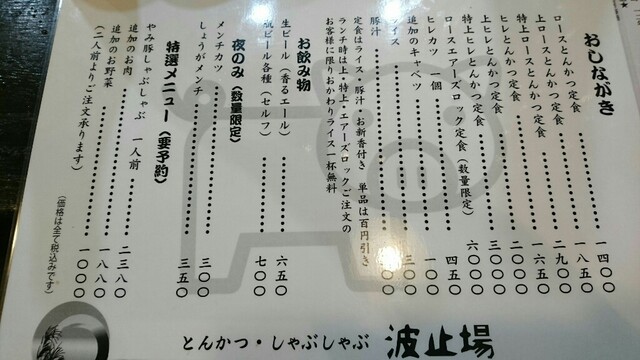 おしながき
ロースとんかつ定食 一四〇〇
上ロースとんかつ定食 一八五〇
特上ロースとんかつ定食 二九〇〇
ヒレとんかつ定食 一六五〇
上ヒレとんかつ定食 二〇〇〇
特上ヒレとんかつ定食 三〇〇〇
ロースエアーズロック定食(数量限定) 六〇〇〇
ヒレカツ 一個 四五〇
追加のキャベツ 一〇〇
ライス 三〇〇
豚汁
定食はライス・豚汁・お新香付き 単品は百円引き
ランチ時は上・特上・エアーズロックご注文の
お客様に限りおかわりライス一杯無料
お飲み物
生ビール(香るエール) 六五〇
瓶ビール各種(セルフ) 七〇〇
夜のみ(数量限定)
メンチカツ 三〇〇
しょうがメンチ 三五〇
特選メニュー(要予約)
やみ豚しゃぶしゃぶ 一人前 二三八〇
追加のお肉 一八八〇
追加のお野菜 一〇〇〇
(二人前よりご注文承ります)
(価格は全て税込みです)
とんかつ・しゃぶしゃぶ 波止場